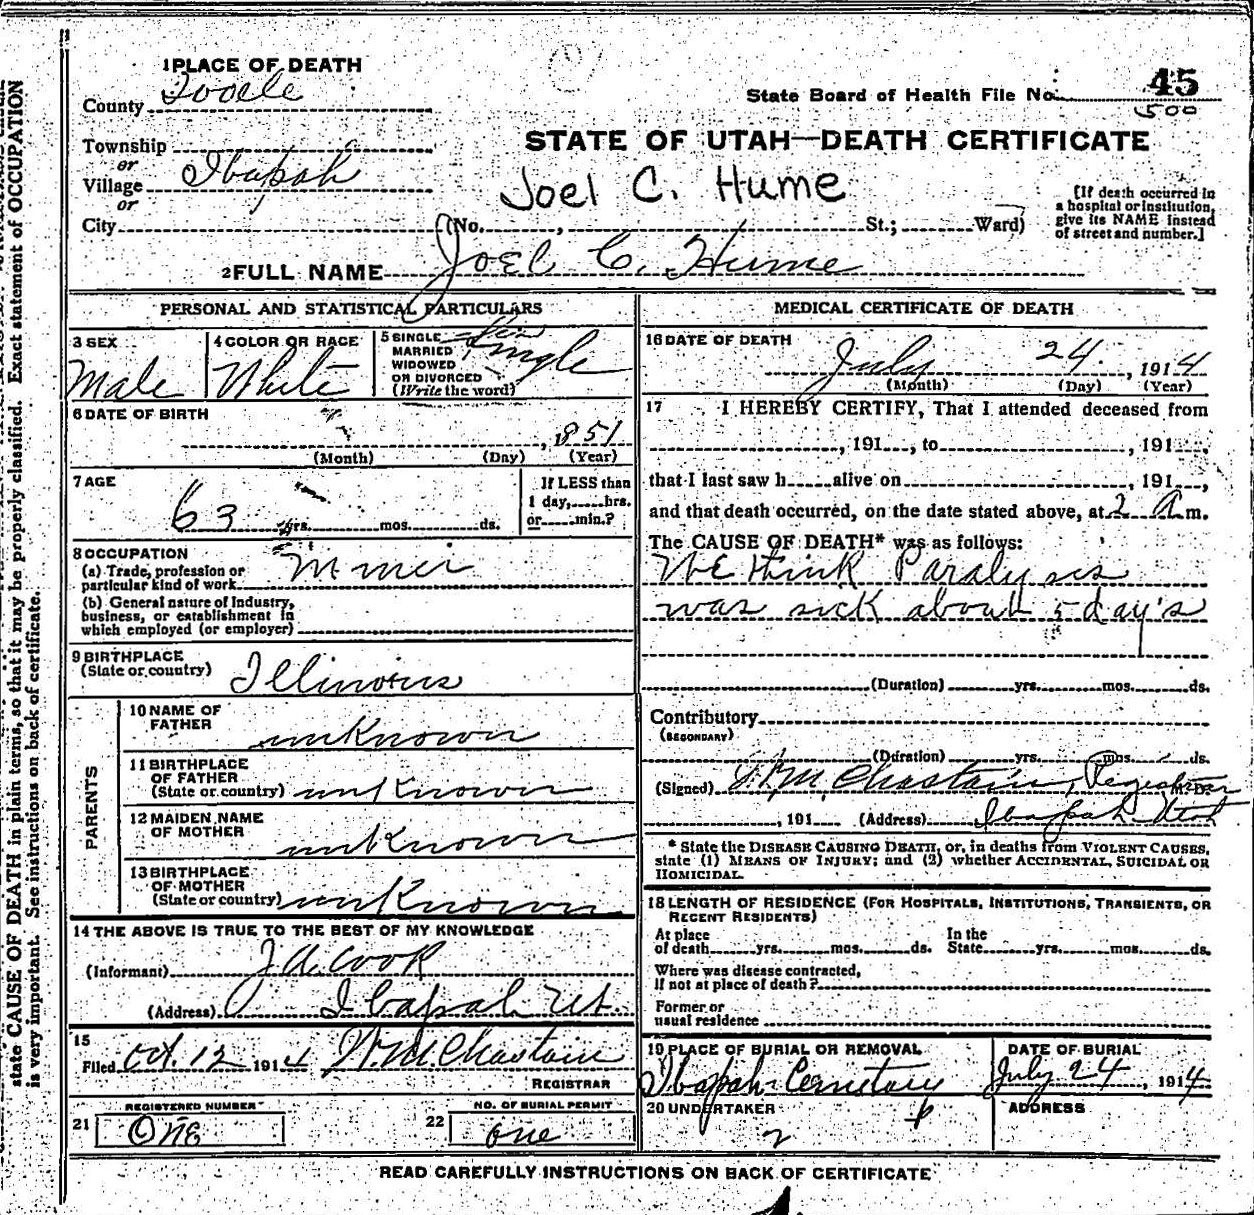 1 PLACE OF DEATH
County Tooele
State Board of Health File No. 45
500
Township
or
Village Ibapah
or
City
STATE OF UTAH—DEATH CERTIFICATE
Joel C. Hume
(No. , St.; Ward)
[If death occurred in
a hospital or institution,
give its NAME instead
of street and number.]
2 FULL NAME Joel C. Hume
PERSONAL AND STATISTICAL PARTICULARS
3 SEX
Male
4 COLOR OR RACE
White
5 SINGLE
MARRIED
WIDOWED
OR DIVORCED
(Write the word)
Single
6 DATE OF BIRTH
, 851
(Month) (Day) (Year)
7 AGE
63 yrs. mos. ds.
If LESS than
1 day, hrs.
or min.?
8 OCCUPATION
(a) Trade, profession or
particular kind of work Miner
(b) General nature of Industry,
business, or establishment in
which employed (or employer)
9 BIRTHPLACE
(State or country) Illinoius
PARENTS
10 NAME OF
FATHER unKnown
11 BIRTHPLACE
OF FATHER
(State or country) unKnown
12 MAIDEN NAME
OF MOTHER unKnown
13 BIRTHPLACE
OF MOTHER
(State or country) unKnown
14 THE ABOVE IS TRUE TO THE BEST OF MY KNOWLEDGE
(Informant) J. A. Cook
(Address) Ibapah Ut.
15
Filed Oct. 12 1914 W.M. Chastain
REGISTRAR
REGISTERED NUMBER
21 One
NO. OF BURIAL PERMIT
22 one
MEDICAL CERTIFICATE OF DEATH
16 DATE OF DEATH
July 24. , 1914
(Month) (Day) (Year)
17 I HEREBY CERTIFY, That I attended deceased from
, 191 , to , 191 ,
that I last saw h alive on , 191 ,
and that death occurred, on the date stated above, at 2 A m.
The CAUSE OF DEATH* was as follows:
We think Paralysis
was sick about 5 day's
(Duration) yrs. mos. ds.
Contributory
(SECONDARY)
(Duration) yrs. mos. ds.
(Signed) W.M. Chastain, Registrar M.D.
, 191 (Address) Ibapah Utah
* State the DISEASE CAUSING DEATH, or, in deaths from VIOLENT CAUSES,
state (1) MEANS OF INJURY; and (2) whether ACCIDENTAL, SUICIDAL OR
HOMICIDAL.
18 LENGTH OF RESIDENCE (FOR HOSPITALS, INSTITUTIONS, TRANSIENTS, OR
RECENT RESIDENTS)
At place
of death yrs. mos. ds.
In the
State yrs. mos. ds.
Where was disease contracted,
If not at place of death?
Former or
usual residence
19 PLACE OF BURIAL OR REMOVAL
Ibapah Cemetary
DATE OF BURIAL
July 24 , 1914
20 UNDERTAKER
ADDRESS
READ CAREFULLY INSTRUCTIONS ON BACK OF CERTIFICATE
state CAUSE OF DEATH in plain terms, so that it may be properly classified. Exact statement of OCCUPATION
is very important. See instructions on back of certificate.